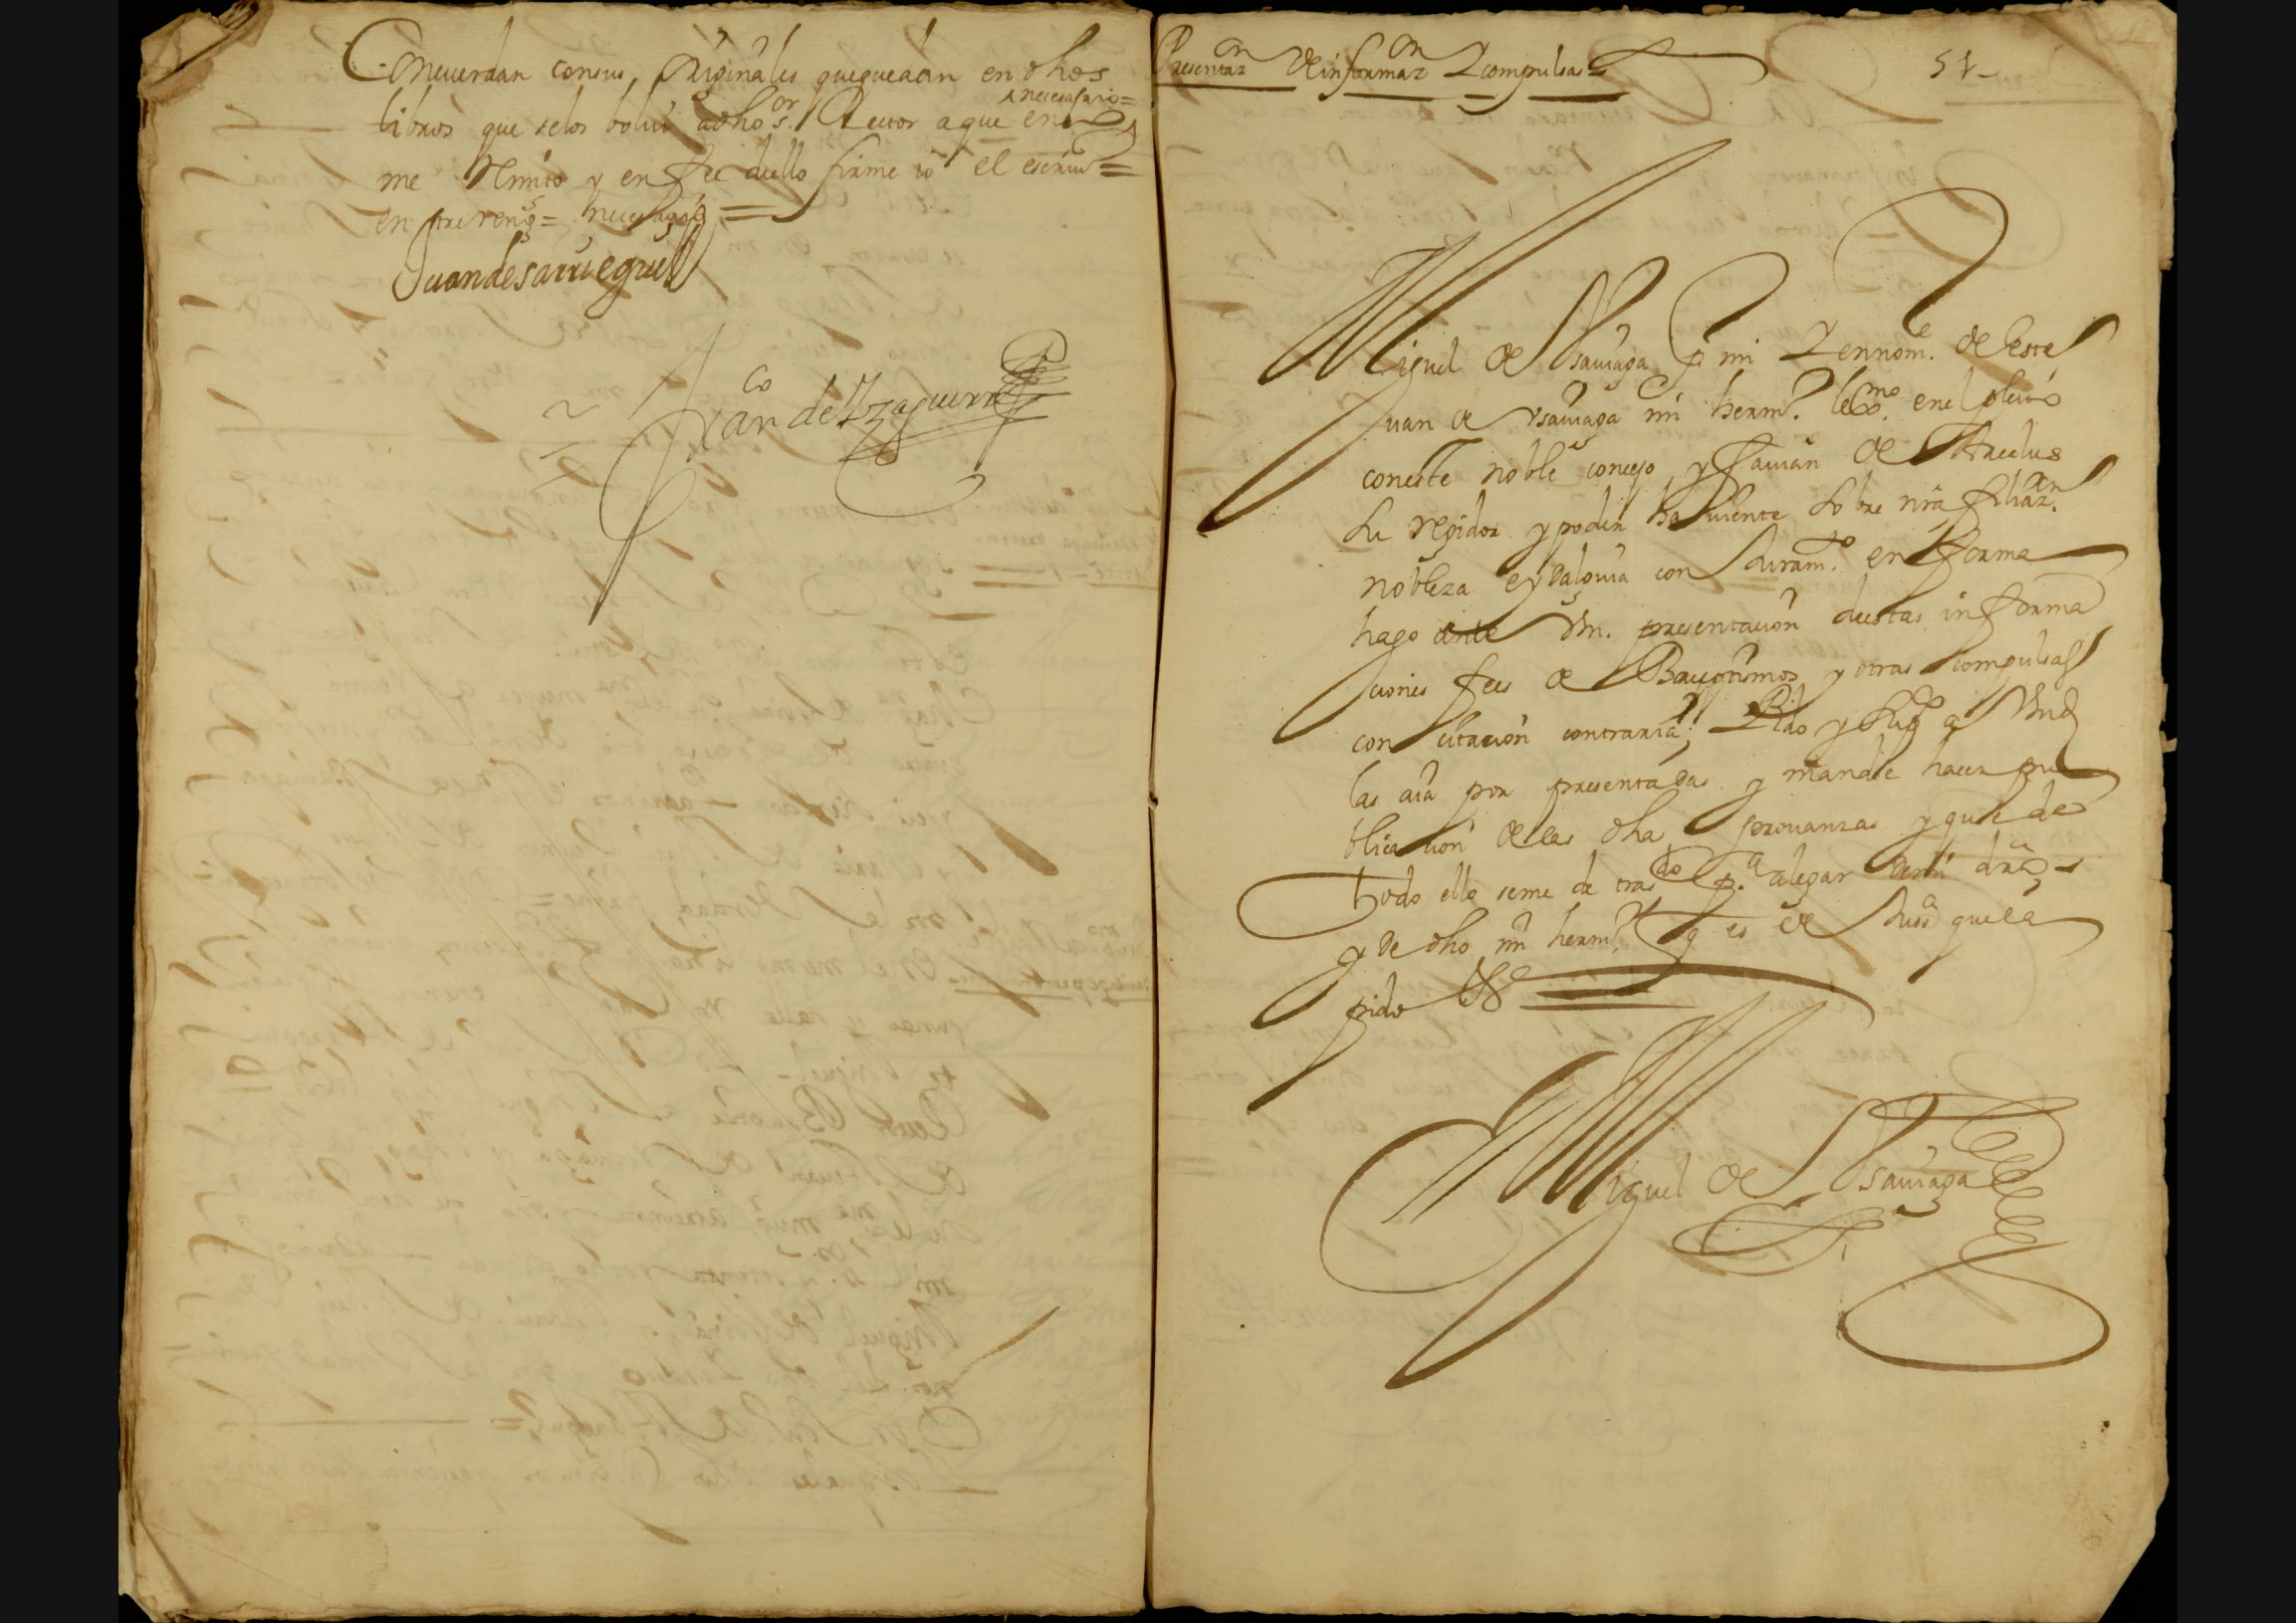 Concuerdan con sus originales que quedan en dhos
necesario=
libros que se los bolui a dho s.or Rector a que en
me Remito y en fee dello firme io el escriu.o=
entre reng.s = necesario =
Juan de Sarriegui
Fran.co de Yzaguirre
Presentaz.on de informaz.on Y compulsas =
51-
Miguel de Ysauiaga p.r mi Y en nom.e de Este
uan de ysauiaga mi herm.o lex.mo en el pleito
con este noble concejo y Fauian de
su regidor y poder hauiente sobre nra filiaz.on
nobleza e ydalguia con Juram.to en forma
hago ante Vm. presentacion destas informa
ciones fees de Bauptismos y otras compulsas
con citacion contraria; Pido y sup.co a Vmd
las aia por presentadas y mande hacer pu
blicacion de las dhas prouanzas y que de
todo ello se me de tras.do p.a alegar de mi dro
y de dho mi herm.o q es de Jus.a que la
pido &.a
Miguel de Ysauiaga